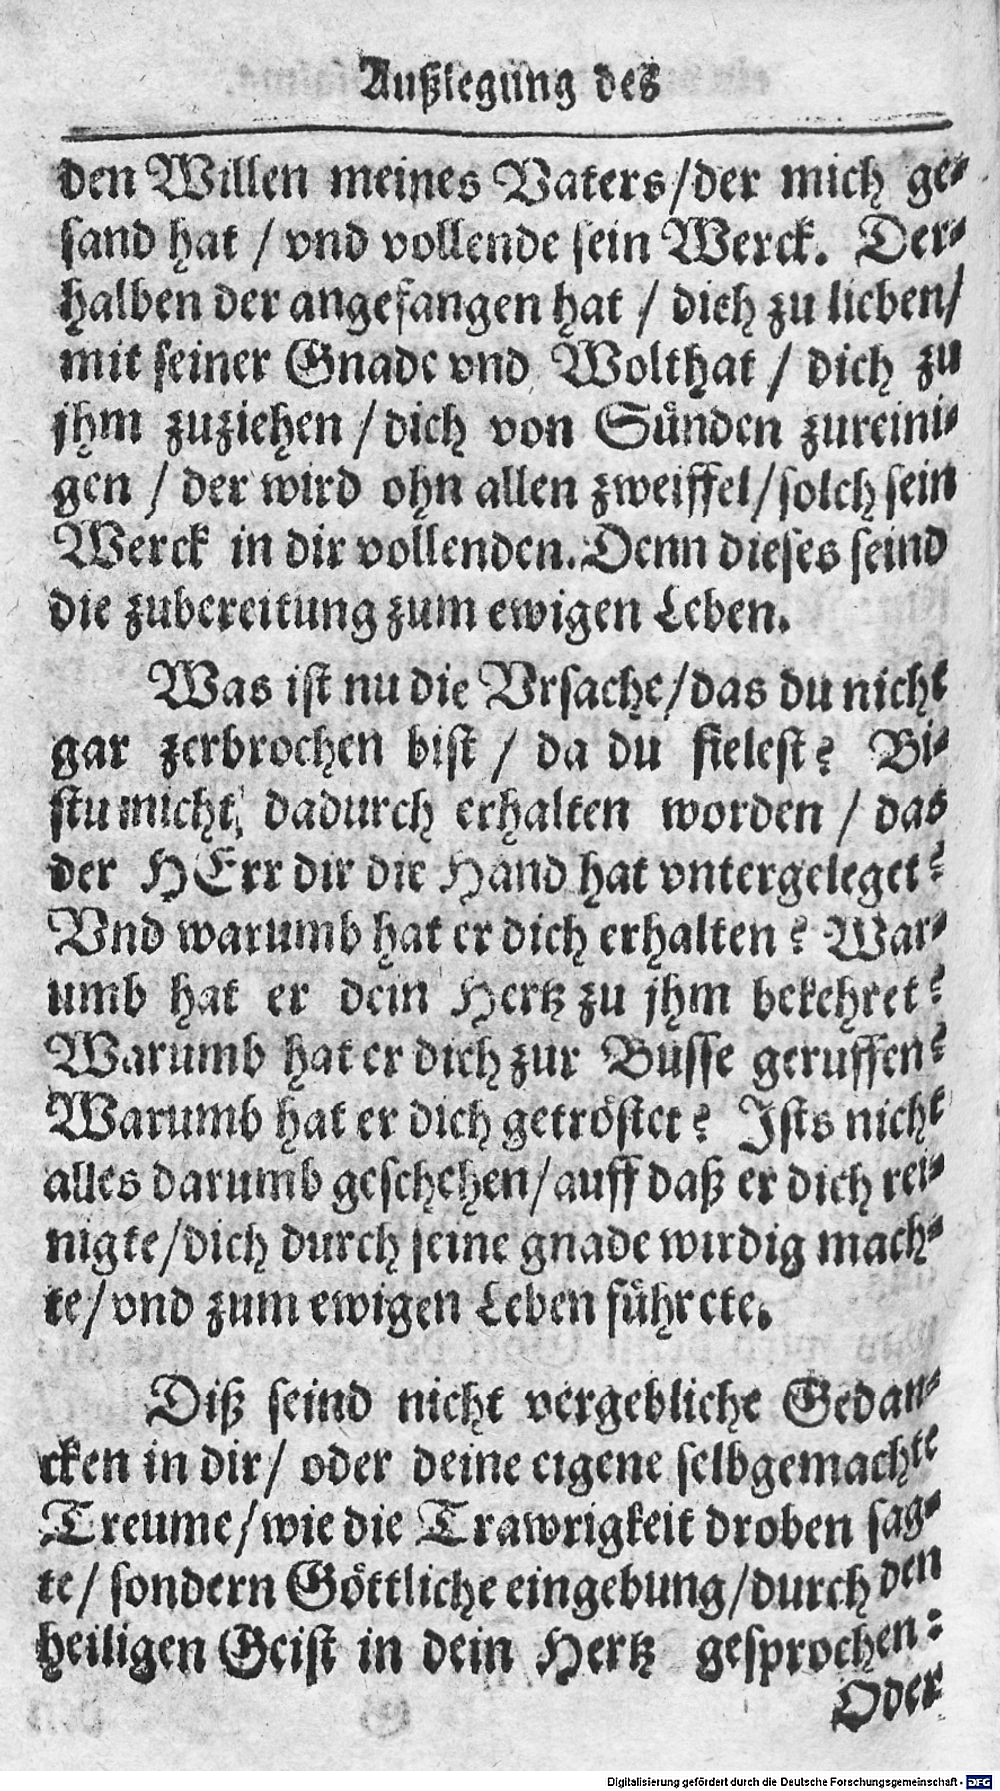 Außlegung des
den Willen meines Vaters/der mich ge-
sand hat / vnd vollende sein Werck. Der-
halben der angefangen hat / dich zu lieben/
mit seiner Gnade vnd Wolthat / dich zu
jhm zuziehen / dich von Sünden zureini-
gen / der wird ohn allen zweiffel/solch sein
Werck in dir vollenden. Denn dieses seind
die zubereitung zum ewigen Leben.
Was ist nu die Vrsache/das du nicht
gar zerbrochen bist / da du fielest? Bi-
stu nicht dadurch erhalten worden / das
der HErr dir die Hand hat vntergeleget?
Vnd warumb hat er dich erhalten? War-
umb hat er dein Hertz zu jhm bekehret?
Warumb hat er dich zur Busse geruffen?
Warumb hat er dich getröstet? Ists nicht
alles darumb geschehen/auff daß er dich rei-
nigte/dich durch seine gnade wirdig mach-
te/vnd zum ewigen Leben führete.
Diß seind nicht vergebliche Gedan-
cken in dir/ oder deine eigene selbgemachte
Treume/wie die Trawrigkeit droben sag-
te/ sondern Göttliche eingebung/durch den
heiligen Geist in dein Hertz gesprochen:
Oder
Digitalisierung gefördert durch die Deutsche Forschungsgemeinschaft - DFG